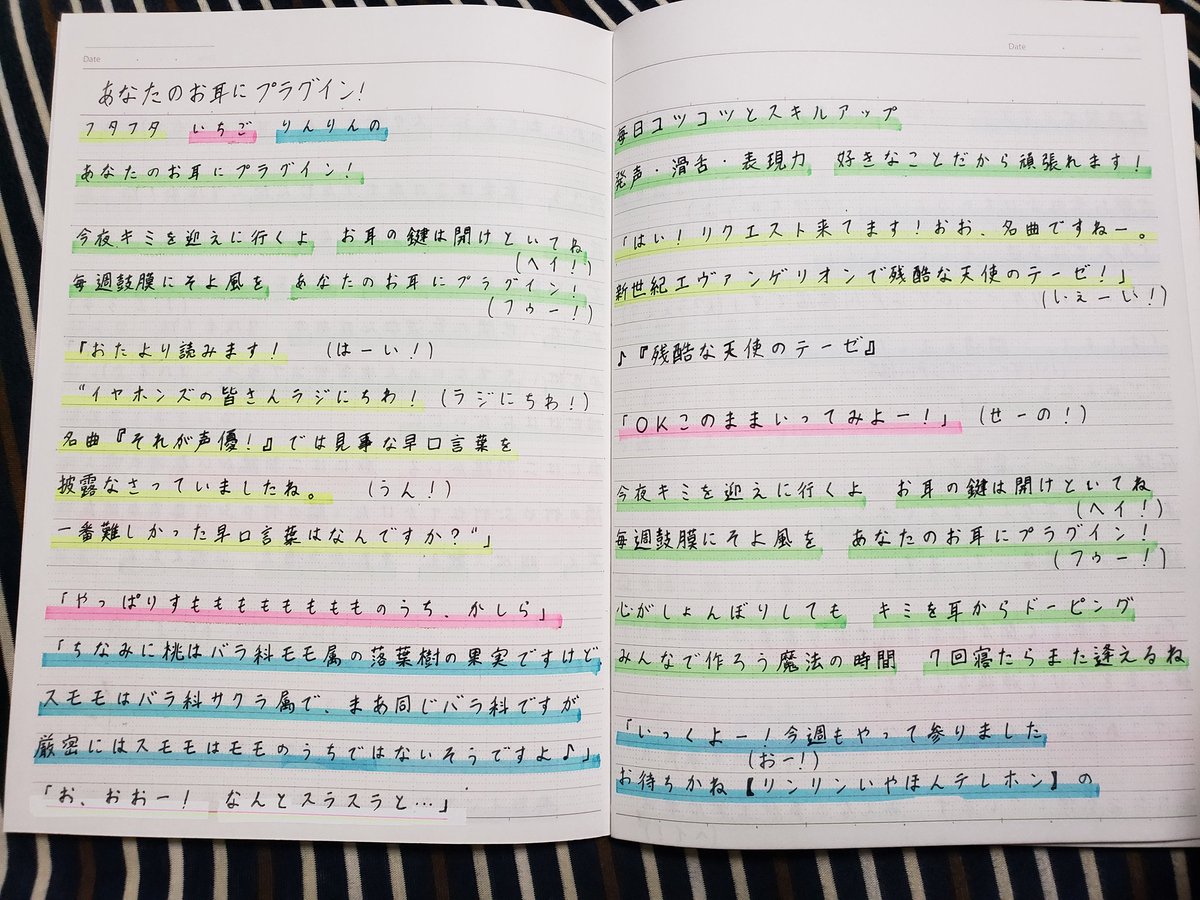 Date
あなたのお耳にプラグイン!
フタフタ いちご りんりんの
あなたのお耳にプラグイン!
今夜キミを迎えに行くよ お耳の鍵は開けといてね
(ヘイ!)
毎週鼓膜にそよ風を あなたのお耳にプラグイン!
(フゥー!)
「おたより読みます! (はーい!)
"イヤホンズの皆さんラジにちわ! (ラジにちわ!)
名曲『それが声優!』では見事な早口言葉を
披露なさっていましたね。 (うん!)
一番難しかった早口言葉はなんですか?"」
「やっぱりすもももももももものうち、かしら」
「ちなみに桃はバラ科モモ属の落葉樹の果実ですけど
スモモはバラ科サクラ属で、まあ同じバラ科ですが
厳密にはスモモはモモのうちではないそうですよ♪」
「お、おおー! なんとスラスラと…」
Date
毎日コツコツとスキルアップ
発声・滑舌・表現力 好きなことだから頑張れます!
「はい!リクエスト来てます!おお、名曲ですねー。
新世紀エヴァンゲリオンで残酷な天使のテーゼ!」
(いぇーい!)
♪『残酷な天使のテーゼ』
「OKこのままいってみよー!」 (せーの!)
今夜キミを迎えに行くよ お耳の鍵は開けといてね
(ヘイ!)
毎週鼓膜にそよ風を あなたのお耳にプラグイン!
(フゥー!)
心がしょんぼりしても キミを耳からドーピング
みんなで作ろう魔法の時間 7回寝たらまた逢えるね
「いっくよー!今週もやって参りました
(おー!)
お待ちかね【リンリンいやほんテレホン】の